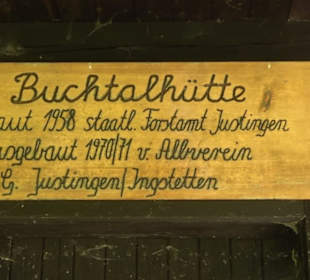 Buchtalhütte
aut 1958 staatl. Forstamt Justingen
sgebaut 1970/71 v. Albverein
G. Justingen/Ingstetten